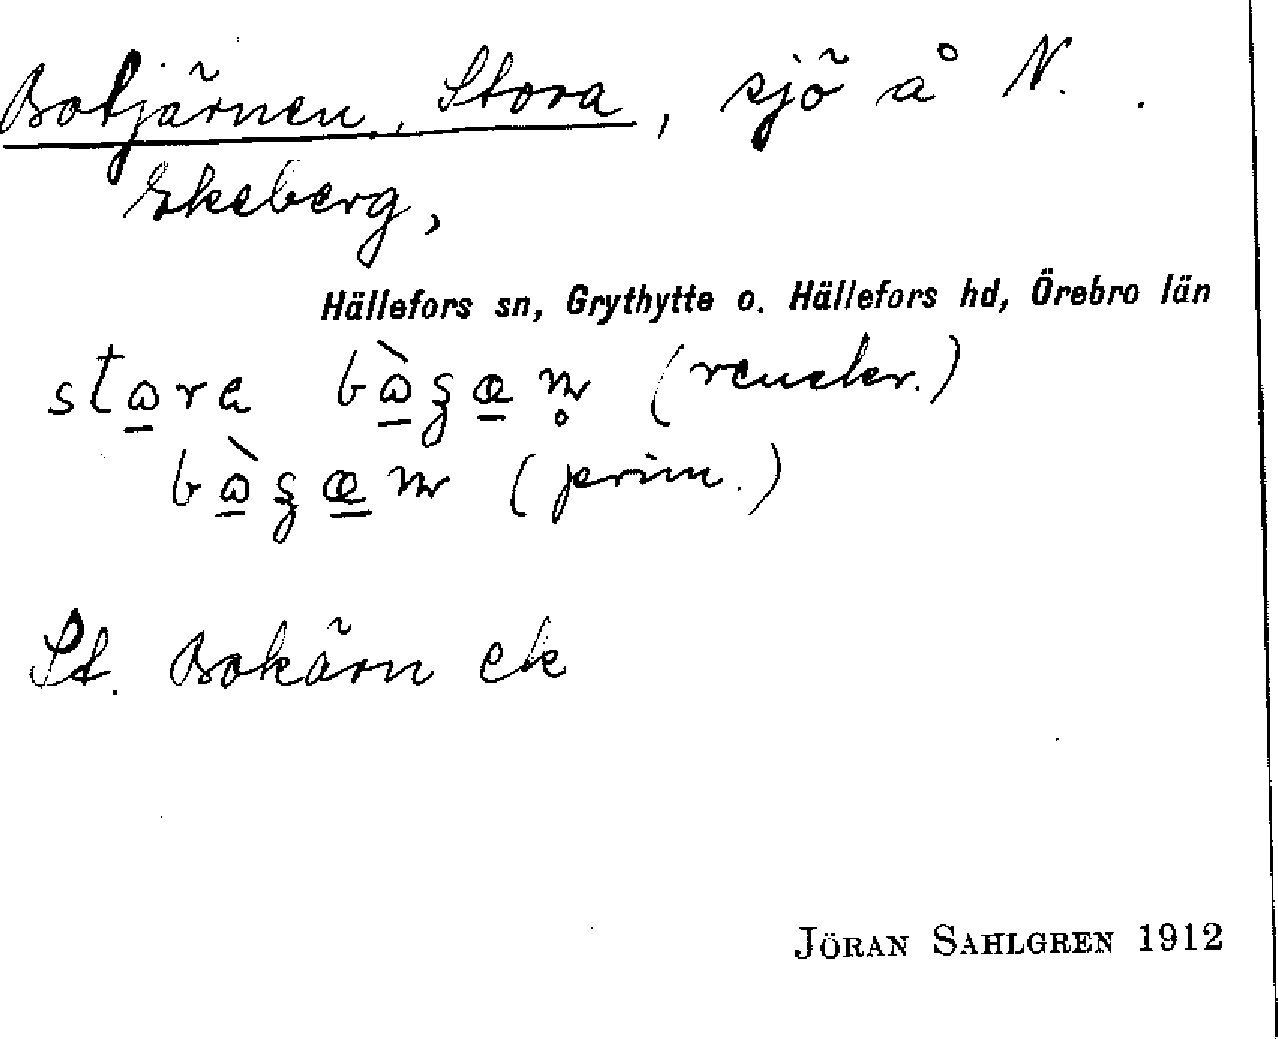 Botjärnen, Stora, sjö å N.
Ekeberg,
Hällefors sn, Grythytte o. Hällefors hd, Örebro län
(prim.)
St. Bokärn ek
JÖRAN SAHLGREN 1912